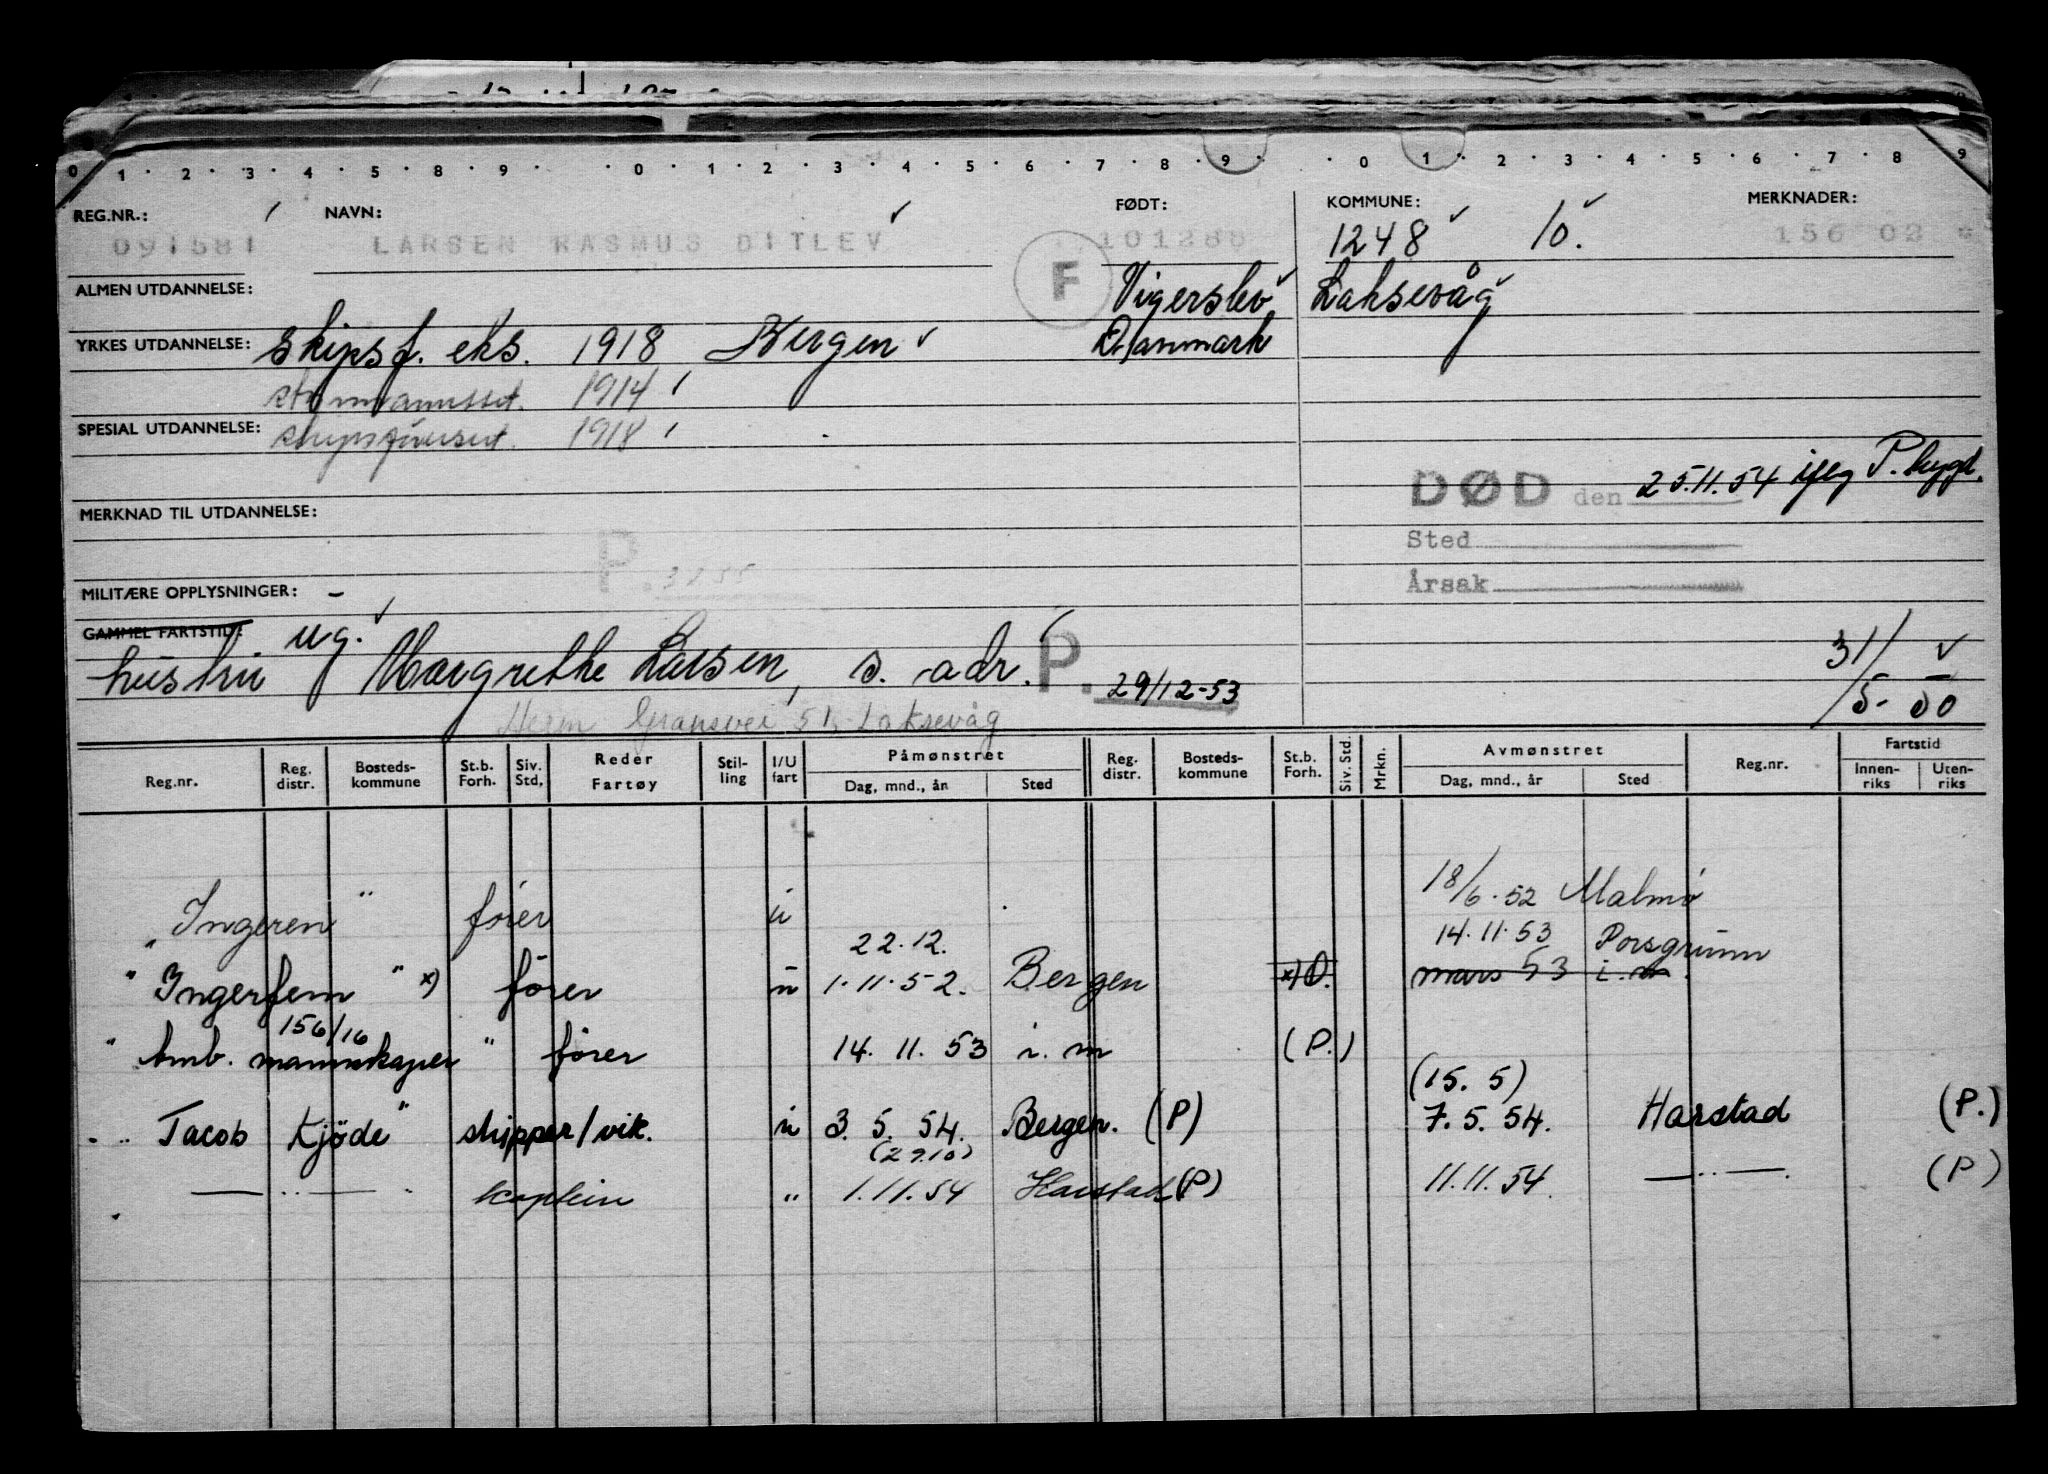 0 1 2 3 4 5 8 9 0 1 2 3 4 5 6 7 8 9 0 1 2 3 4 5 6 7 8 9
REG.NR.: NAVN: FØDT: KOMMUNE: MERKNADER:
091581 LARSEN RASMUS DITLEV 1012 1248 10. 156 02 *
F
ALMEN UTDANNELSE: Vigerslev Laksevåg
YRKES UTDANNELSE: Skipsf. eks. 1918 Bergen Danmark
1914
SPESIAL UTDANNELSE: 1918
DØD den 25.11.54 P.
MERKNAD TIL UTDANNELSE:
Sted
P.
Årsak
MILITÆRE OPPLYSNINGER: -
GAMMEL FARTSTID: ug.
hustru Margrethe Larsen, s. adr. P. 29/12-53 31/5-50
Herm Gransvei 51, Laksevåg
Reg.nr. Reg. distr. Bosteds-kommune St.b. Forh. Siv. Std. Reder Fartøy Stil-ling I/U fart Påmønstret Dag, mnd., ån Sted Reg. distr. Bosteds-kommune St.b. Forh. Siv. Std. Mrkn. Avmønstret Dag, mnd., år Sted Reg.nr. Fartstid Innen-riks Uten-riks
" Ingeren " fører u 18/6.52 Malmø
22.12. 14.11.53 Porsgrunn
" Ingerfem " x) fører u 1.11.52. Bergen x) O. mars 53 i.m.
156/16
" amb. mannskaper " fører 14. 11. 53 i. m (P.)
(15. 5)
" Jacob Kjöde " skipper/vik. u 3. 5. 54. Bergen. (P) 7. 5. 54. Harstad (P.)
(29.10)
— " — " kaptein " 1.11.54 Harstad (P) 11.11.54. — " — (P)